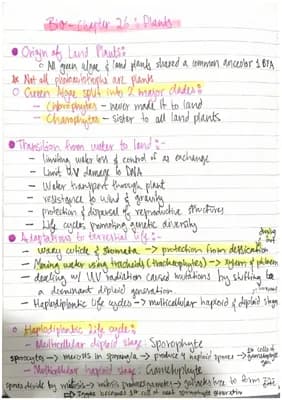 Bio - Chapter 26 : Plants
Origin of Land Plants:
- All green algae & land plants shared a common ancestor 1 BYA
* Not all photoautotrophs are plants
Green Algae split into 2 major clades:
- Chlorophytes - never made it to land
- Charophytes - sister to all land plants
Transition from water to land :-
- limiting water loss & control of gas exchange
- Limit UV damage to DNA
- Water transport through plant
- resistance to wind & gravity
- protection & dispersal of reproductive structures
- Life cycles promoting genetic diversity
Adaptations to terrestrial life :-
drying out
- waxy cuticle & stomata -> protection from desiccation
- Moving water using tracheids (tracheophytes) -> xylem & phloem
- dealing w/ UV radiation caused mutations by shifting to
a dominant diploid generation
- Haplodiplontic life cycles -> multicellular haploid & diploid stage
Haplodiplontic Life cycle:
- Multicellular diploid stage: Sporophyte
sporocytes -> meiosis in sporangia -> produce 4 haploid spores -> 1st cells of gametophyte gen.
- Multicellular haploid stage: Gametophyte
spores divide by mitosis -> mitosis produces gametes -> gametes fuse to form
Zygote becomes 1st cell of next sporophyte generation